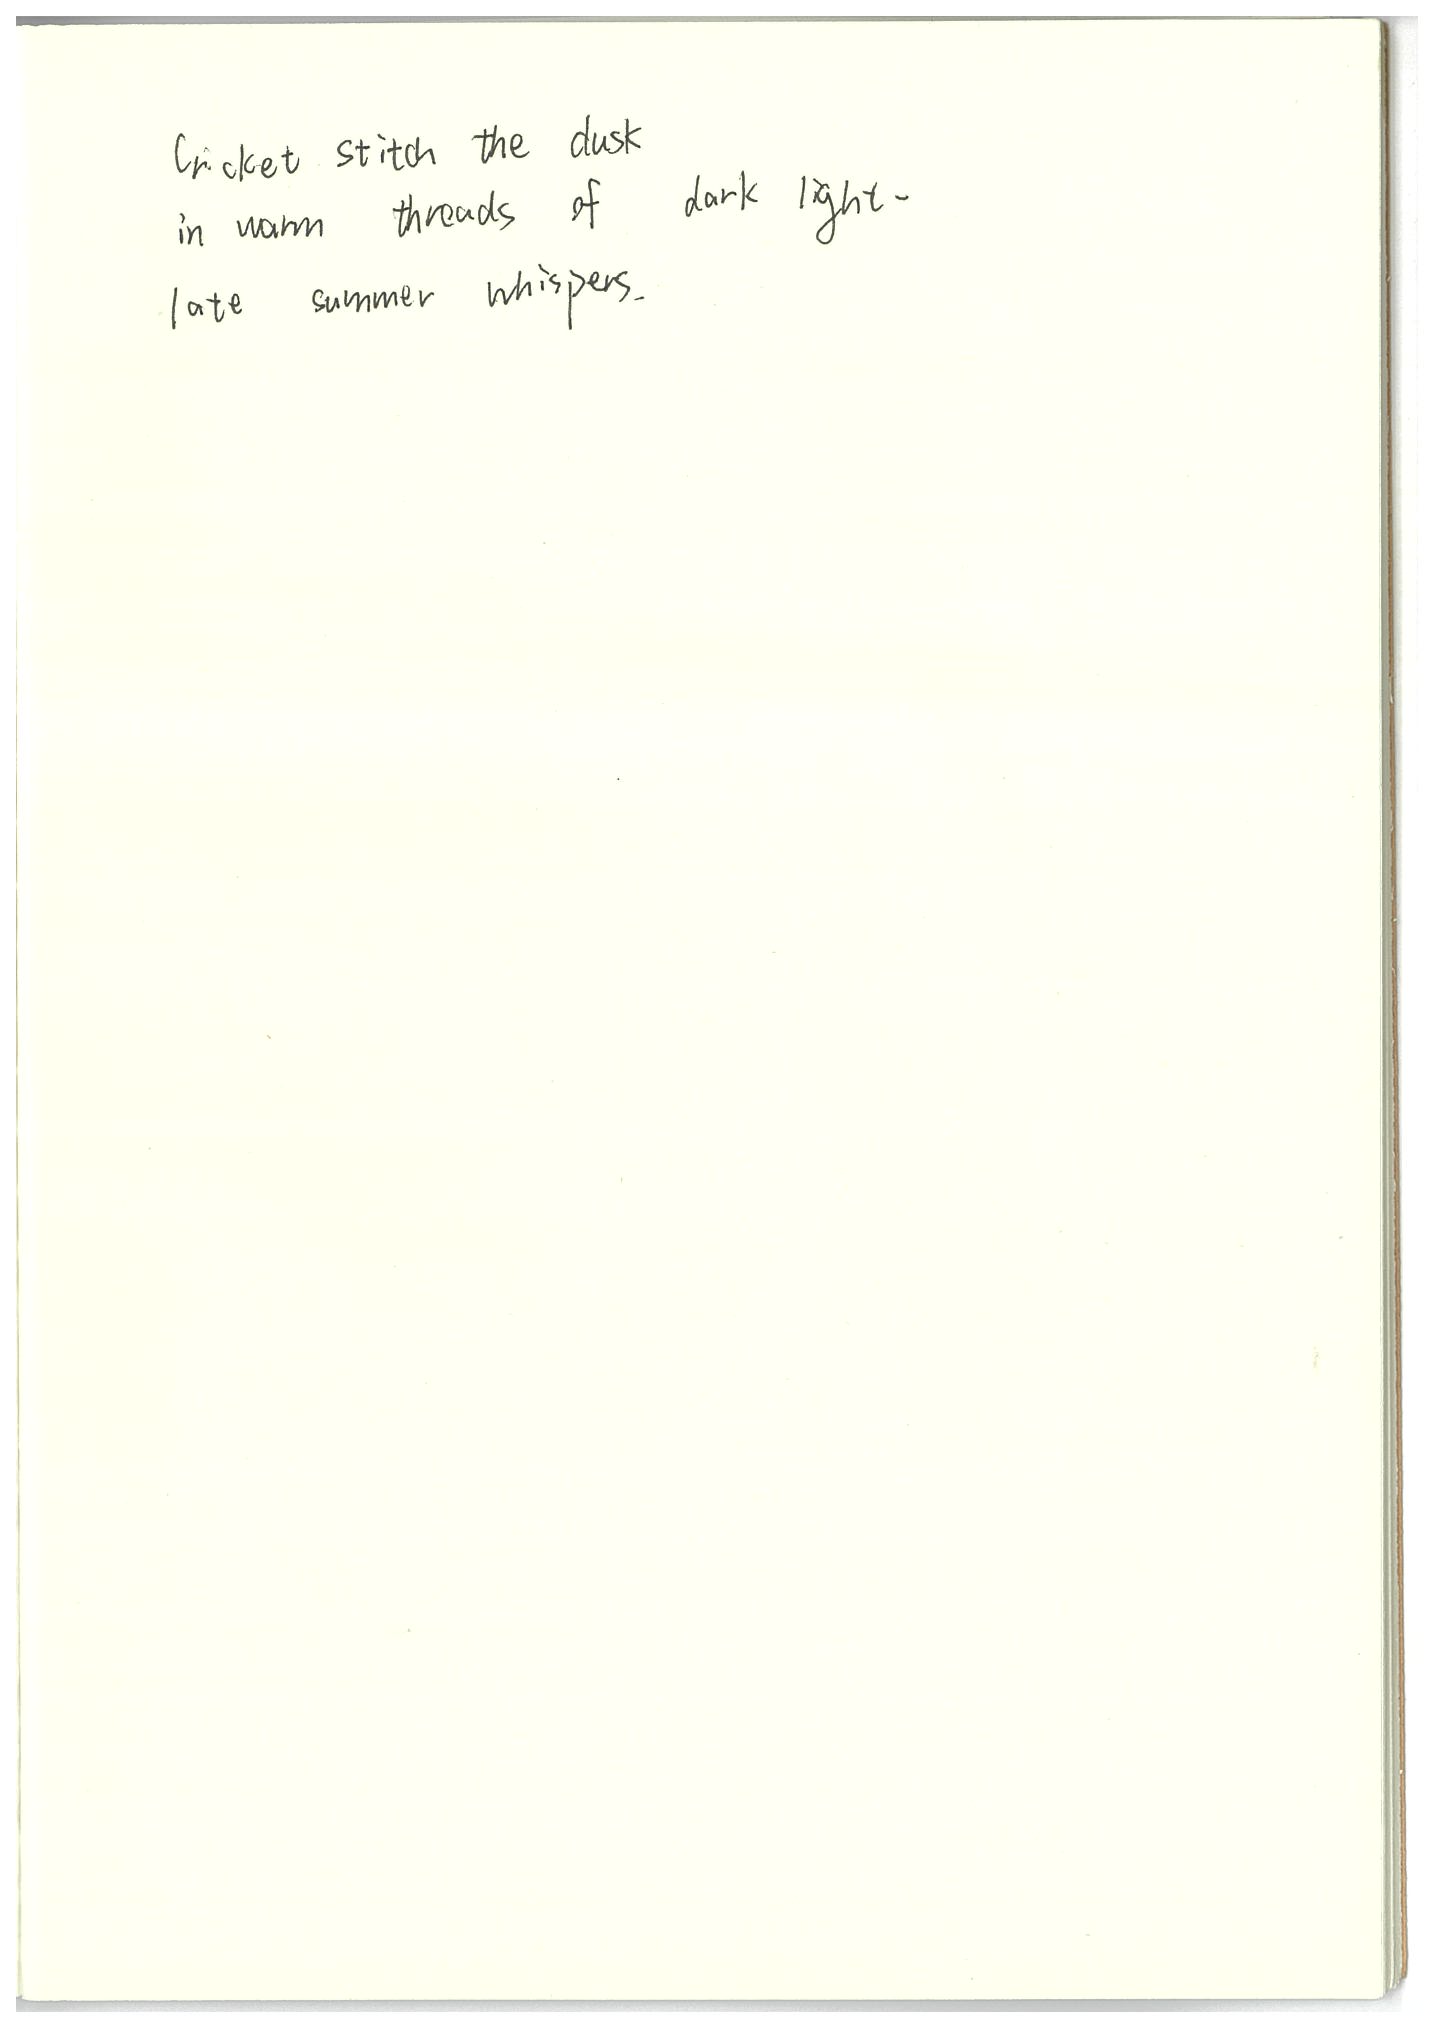 Cricket stitch the dusk
in warm threads of dark light-
late summer whispers.